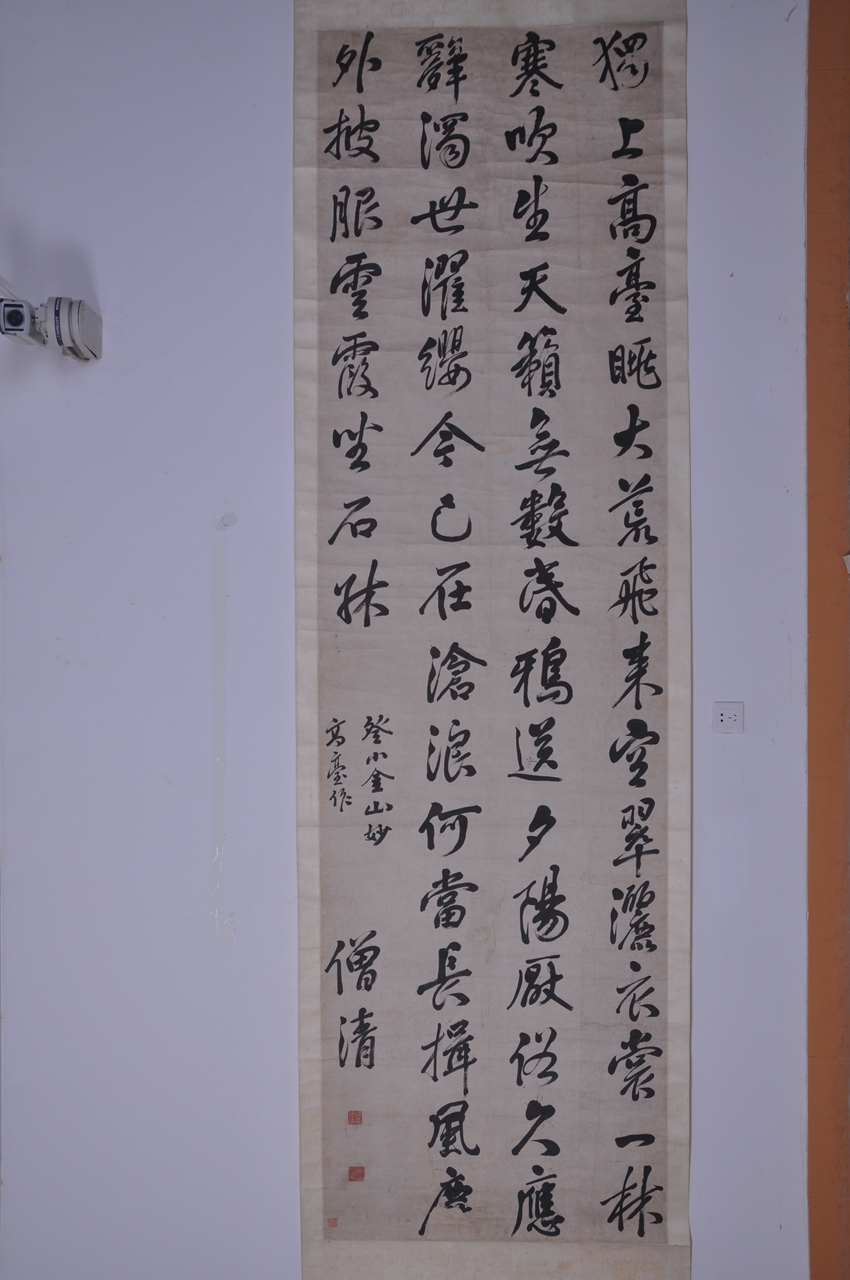 獨上高臺眺大荒飛来空翠灑衣裳一林
寒吹生天籟無數昏鴉送夕陽厭俗久應
辭濁世濯纓今已在滄浪何當長揖風塵
外披服雲霞坐石床
登小金山妙
高臺作
僧清